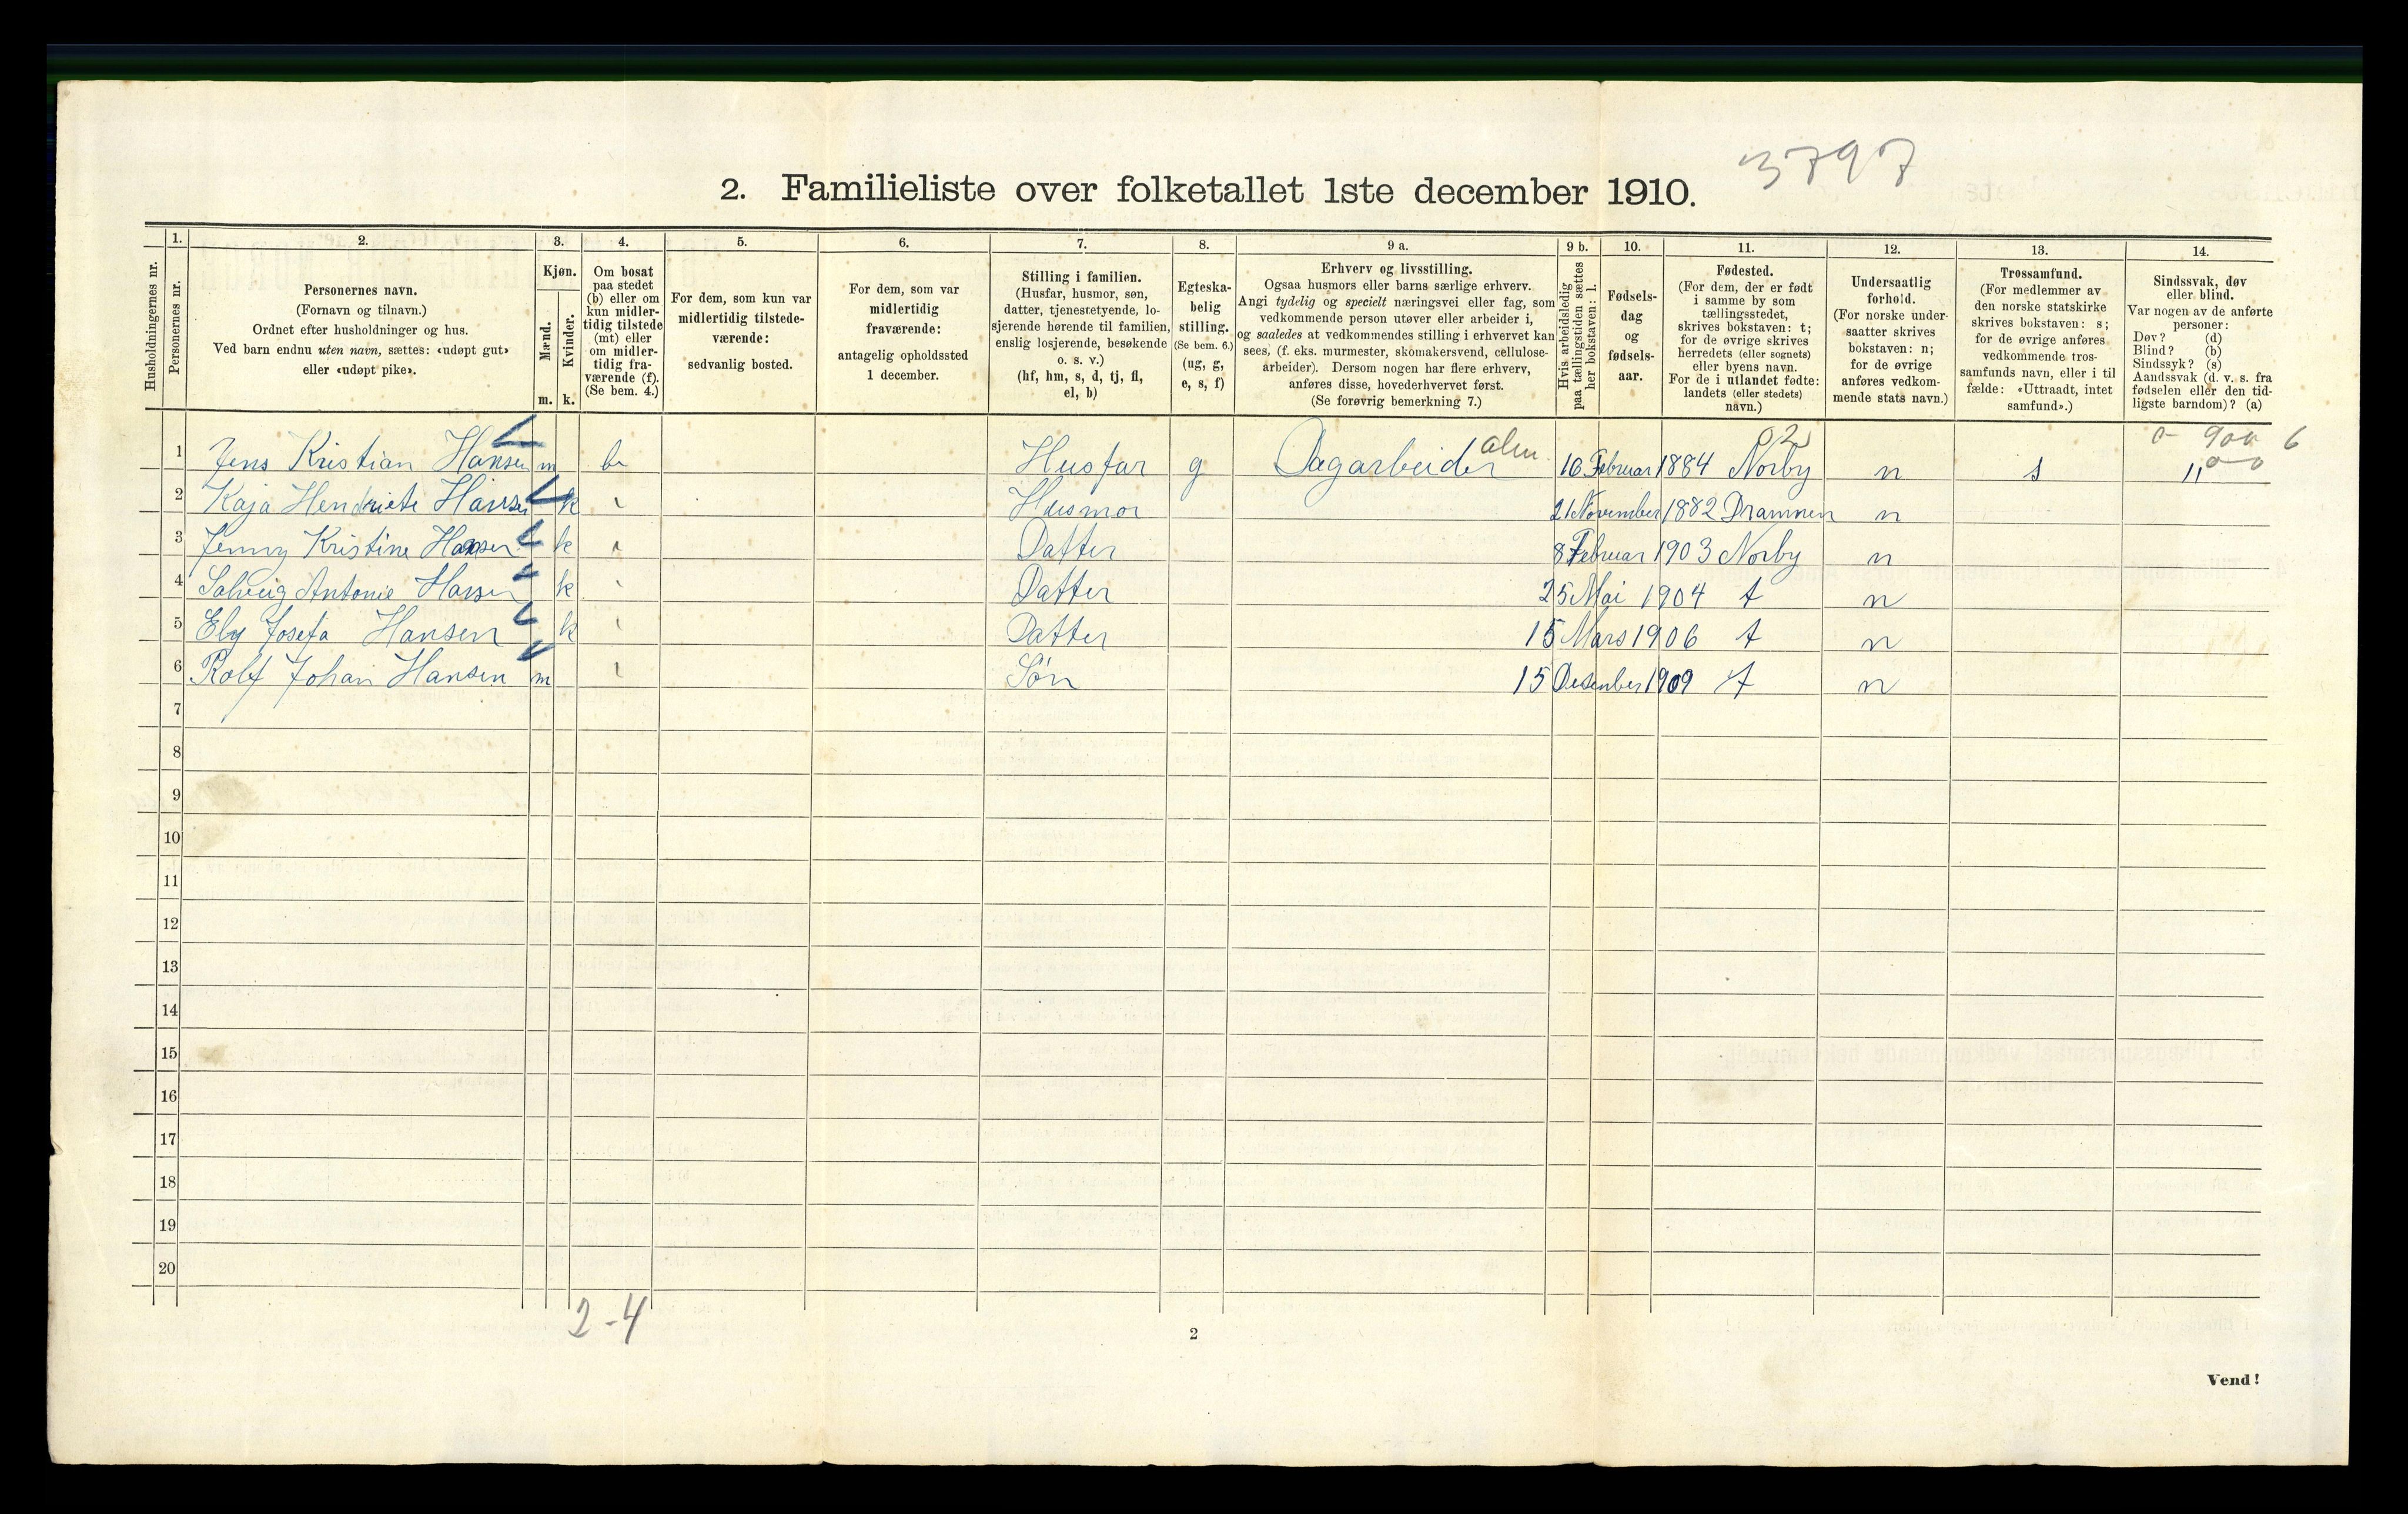 3797
2. Familieliste over folketallet 1ste december 1910.
Husholdningernes nr.
1.
Personernes nr.
2.
Personernes navn.
(Fornavn og tilnavn.)
Ordnet efter husholdninger og hus.
Ved barn endnu uten navn, sættes: «udøpt gut»
eller «udøpt pike».
3.
Kjøn.
Mænd.
Kvinder.
m. k.
4.
Om bosat
paa stedet
(b) eller om
kun midler-
tidig tilstede
(mt) eller
om midler-
tidig fra-
værende (f).
(Se bem. 4.)
5.
For dem, som kun var
midlertidig tilstede-
værende:
sedvanlig bosted.
6.
For dem, som var
midlertidig
fraværende:
antagelig opholdssted
1 december.
7.
Stilling i familien.
(Husfar, husmor, søn,
datter, tjenestetyende, lo-
sjerende hørende til familien,
enslig losjerende, besøkende
o. s. v.)
(hf, hm, s, d, tj, fl,
el, b)
8.
Egteska-
belig
stilling.
(Se bem. 6.)
(ug, g,
e, s, f)
9 a.
Erhverv og livsstilling.
Ogsaa husmors eller barns særlige erhverv.
Angi tydelig og specielt næringsvei eller fag, som
vedkommende person utøver eller arbeider i,
og saaledes at vedkommendes stilling i erhvervet kan
sees, (f. eks. murmester, skomakersvend, cellulose-
arbeider). Dersom nogen har flere erhverv,
anføres disse, hovederhvervet først.
(Se forøvrig bemerkning 7.)
9 b.
Hvis arbeidsledig
paa tællingstiden sættes
her bokstaven: l.
10.
Fødsels-
dag
og
fødsels-
aar.
11.
Fødested.
(For dem, der er født
i samme by som
tællingsstedet,
skrives bokstaven: t;
for de øvrige skrives
herredets (eller sognets)
eller byens navn.
For de i utlandet fødte:
landets (eller stedets)
navn.)
12.
Undersaatlig
forhold.
(For norske under-
saatter skrives
bokstaven: n;
for de øvrige
anføres vedkom-
mende stats navn.)
13.
Trossamfund.
(For medlemmer av
den norske statskirke
skrives bokstaven: s;
for de øvrige anføres
vedkommende tros-
samfunds navn, eller i til
fælde: «Uttraadt, intet
samfund».)
14.
Sindssvak, døv
eller blind.
Var nogen av de anførte
personer:
Døv? (d)
Blind? (b)
Sindssyk? (s)
Aandssvak (d. v. s. fra
fødselen eller den tid-
ligste barndom)? (a)
02
1 Jens Kristian Hansen m b Husfar g Dagarbeider alm. 16 Februar 1884 Norby n s
2 Kaja Hendriete Hansen k Husmor 21 November 1882 Drammen n
3 Jenny Kristine Hansen k Datter 8 Februar 1903 Norby n
4 Solveig Antonie Hansen k Datter 25 Mai 1904 t n
5 Ely Josefa Hansen k Datter 15 Mars 1906 t n
6 Rolf Johan Hansen m Søn 15 Desember 1909 t n
7
8
9
10
11
12
13
14
15
16
17
18
19
20
2-4
2
Vend!